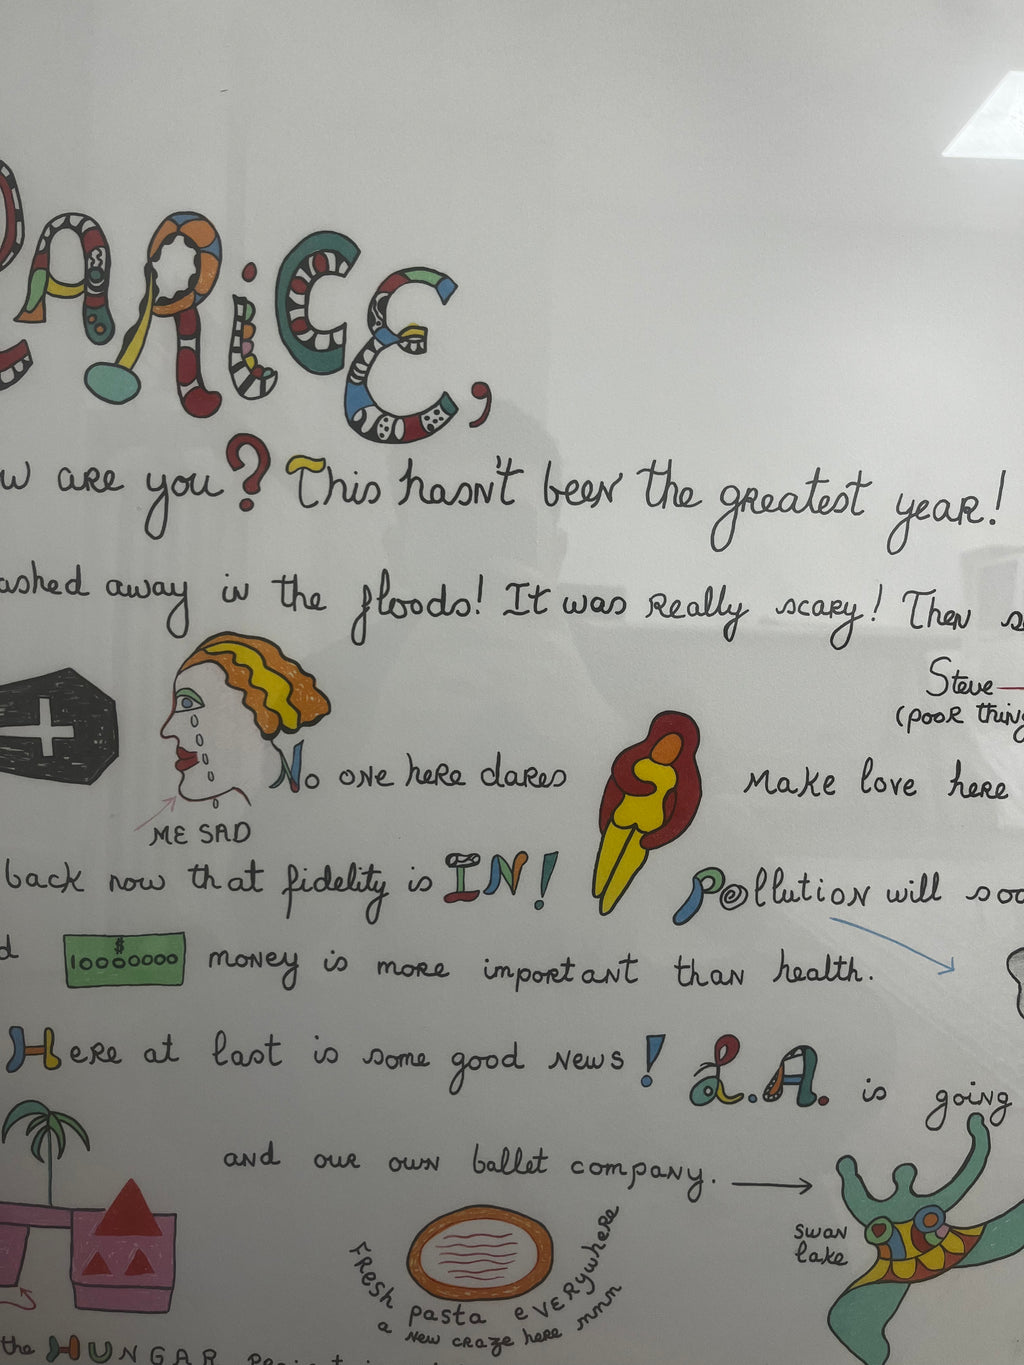 CLARICE,
w are you? This hasn't been the greatest year!
ashed away in the floods! It was really scary! Then s
Steve
(poor thing
No one here dares make love here
ME SAD
back now that fidelity is IN! Pollution will soo
d $ 10000000 money is more important than health.
Here at last is some good news! L.A. is going
and our own ballet company.
swan
lake
Fresh pasta everywhere
a new craze here mmm
the HUNGAR